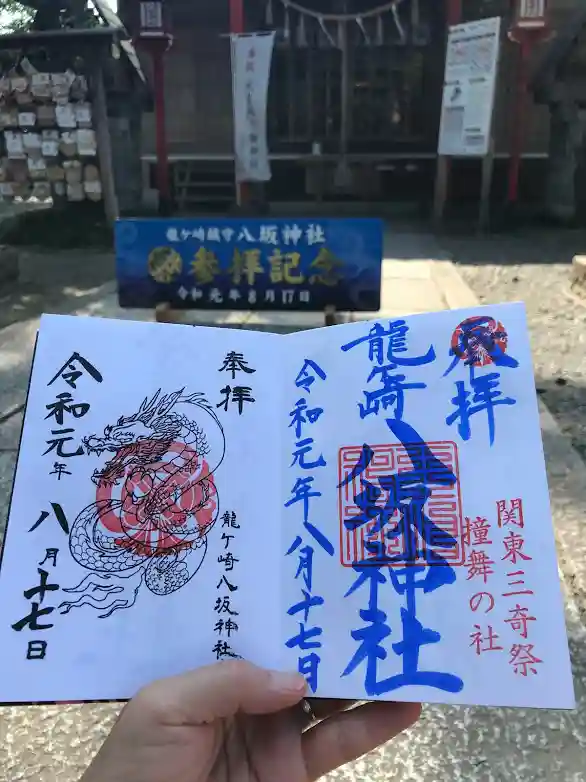 龍ケ崎鎮守八坂神社
参拝記念
令和元年8月17日
奉拝
龍ケ崎八坂神社
令和元年
八月十七日
奉拝
龍ケ崎
八坂神社
令和元年八月十七日
関東三奇祭
撞舞の社